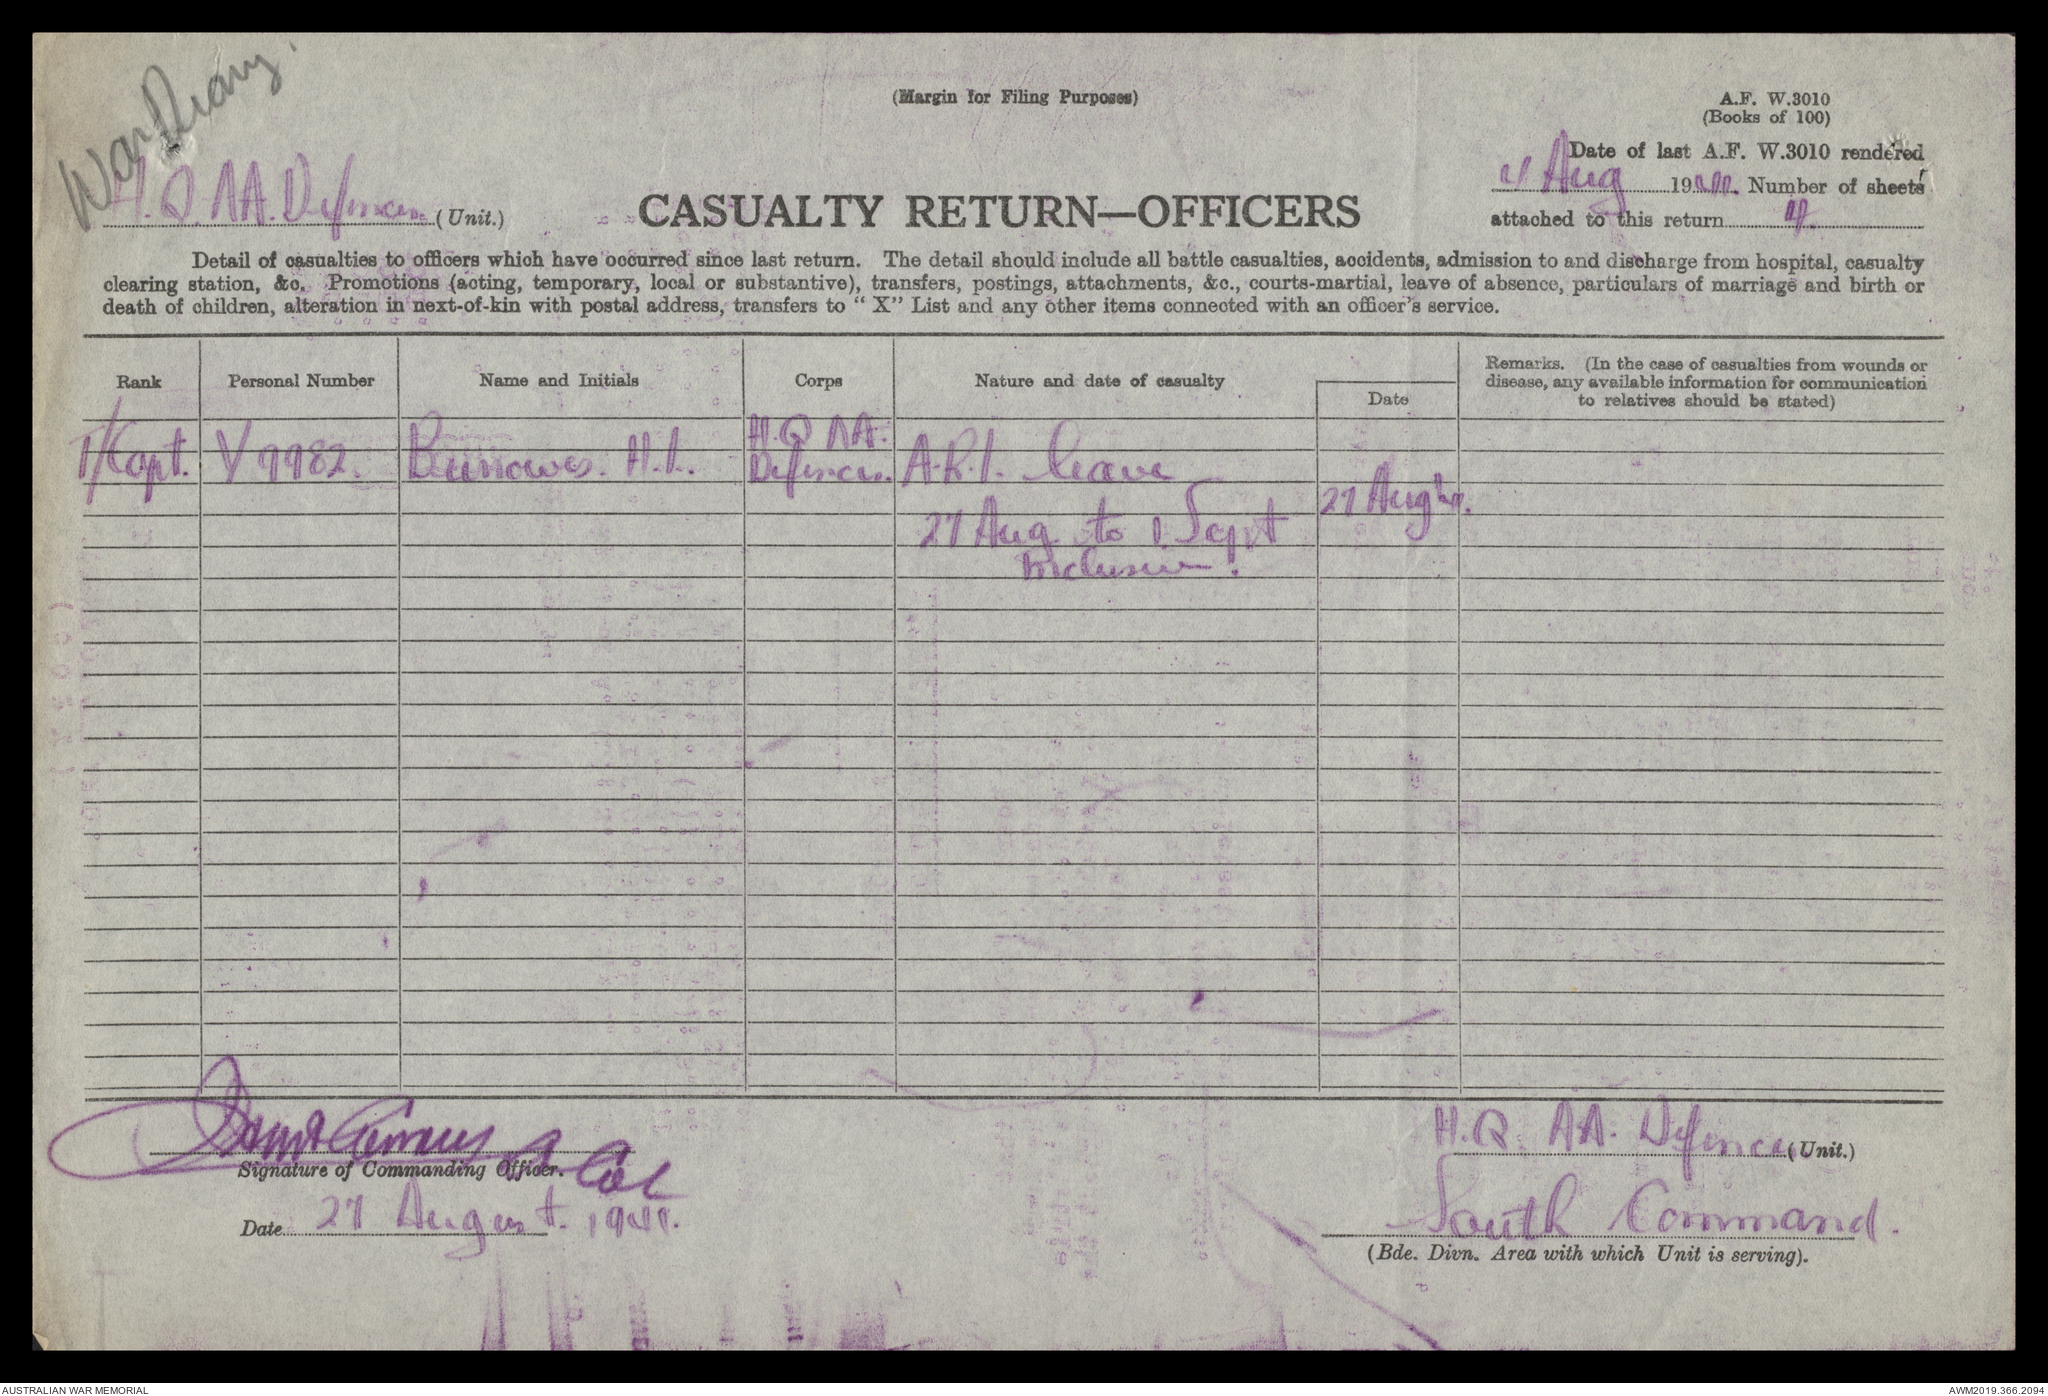 War Diary.
(Margin for Filing Purposes)
A.F. W.3010
(Books of 100)
Date of last A.F. W.3010 rendered
Aug 19 Number of sheets
attached to this return
H.Q. AA. Defences (Unit.)
CASUALTY RETURN—OFFICERS
Detail of casualties to officers which have occurred since last return. The detail should include all battle casualties, accidents, admission to and discharge from hospital, casualty
clearing station, &c. Promotions (acting, temporary, local or substantive), transfers, postings, attachments, &c., courts-martial, leave of absence, particulars of marriage and birth or
death of children, alteration in next-of-kin with postal address, transfers to "X" List and any other items connected with an officer's service.
Rank
Personal Number
Name and Initials
Corps
Nature and date of casualty
Date
Remarks. (In the case of casualties from wounds or
disease, any available information for communication
to relatives should be stated)
T/Capt. V9982. Burrowes. H.L. H.Q AA. Defences. leave
27 Aug to 1 Sept
inclusive.
27 Aug
Col
Signature of Commanding Officer.
Date 27 August. 1941.
H.Q. AA. Defences (Unit.)
South Command.
(Bde. Divn. Area with which Unit is serving).
AUSTRALIAN WAR MEMORIAL
AWM2019.366.2094